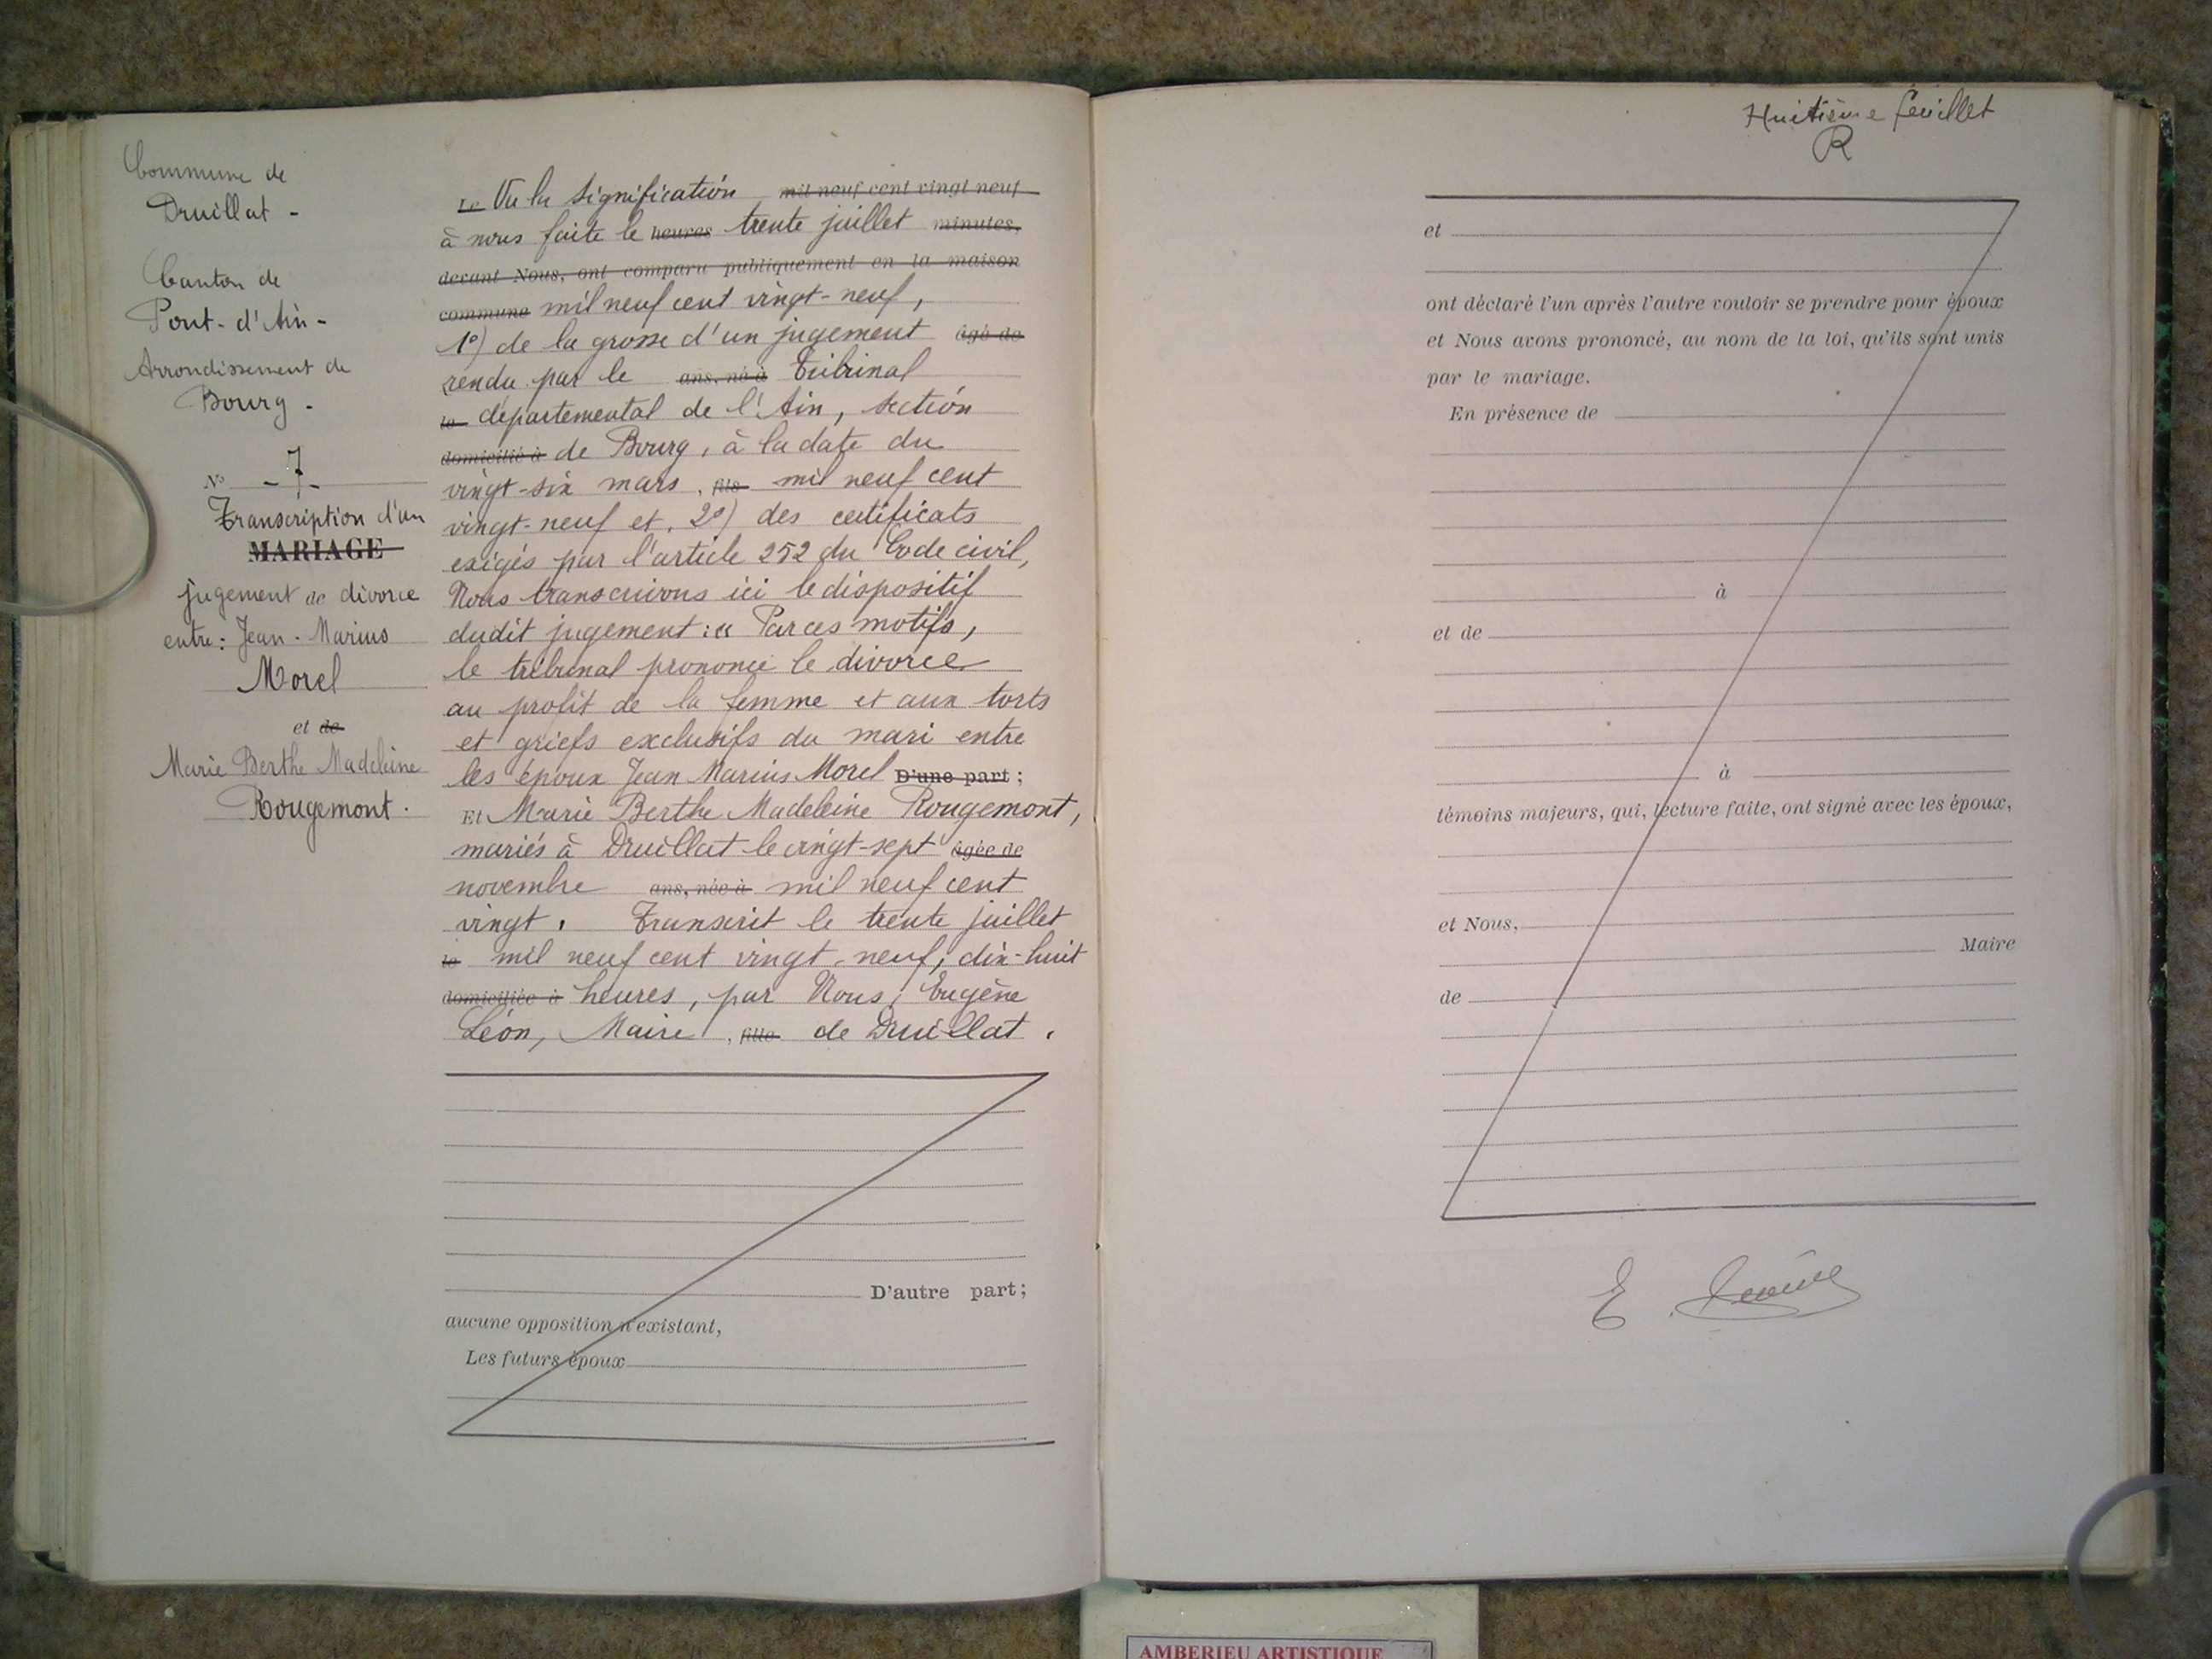 Commune de
Druillat -
Canton de
Pont-d'Ain -
Arrondissement de
Bourg -
N° - 7 -
Transcription d'un
MARIAGE
jugement de divorce
entre: Jean-Marius
Morel
et de
Marie Berthe Madeleine
Rougemont.
Le Vu la signification mil neuf cent vingt neuf
à nous faite le heures trente juillet minutes,
devant Nous, ont comparu publiquement en la maison
commune mil neuf cent vingt-neuf,
1°) de la grosse d'un jugement âgé de
rendu par le ans, né à Tribunal
le départemental de l'Ain, section
domicilié à de Bourg, à la date du
vingt-six mars, fils mil neuf cent
vingt-neuf et, 2°) des certificats
exigés par l'article 252 du Code civil,
Nous transcrivons ici le dispositif
dudit jugement: « Par ces motifs,
le tribunal prononce le divorce
au profit de la femme et aux torts
et griefs exclusifs du mari entre
les époux Jean Marius Morel D'une part;
Et Marie Berthe Madeleine Rougemont,
mariés à Druillat le vingt-sept âgée de
novembre ans, née à mil neuf cent
vingt. Transcrit le trente juillet
le mil neuf cent vingt-neuf, dix-huit
domiciliée à heures, par Nous, Eugène
Léon, Maire, fille de Druillat.
D'autre part;
aucune opposition n'existant,
Les futurs époux
Huitième feuillet
R
et
ont déclaré l'un après l'autre vouloir se prendre pour époux
et Nous avons prononcé, au nom de la loi, qu'ils sont unis
par le mariage.
En présence de
à
et de
à
témoins majeurs, qui, lecture faite, ont signé avec les époux,
et Nous,
Maire
de
E.
AMBERIEU ARTISTIQUE